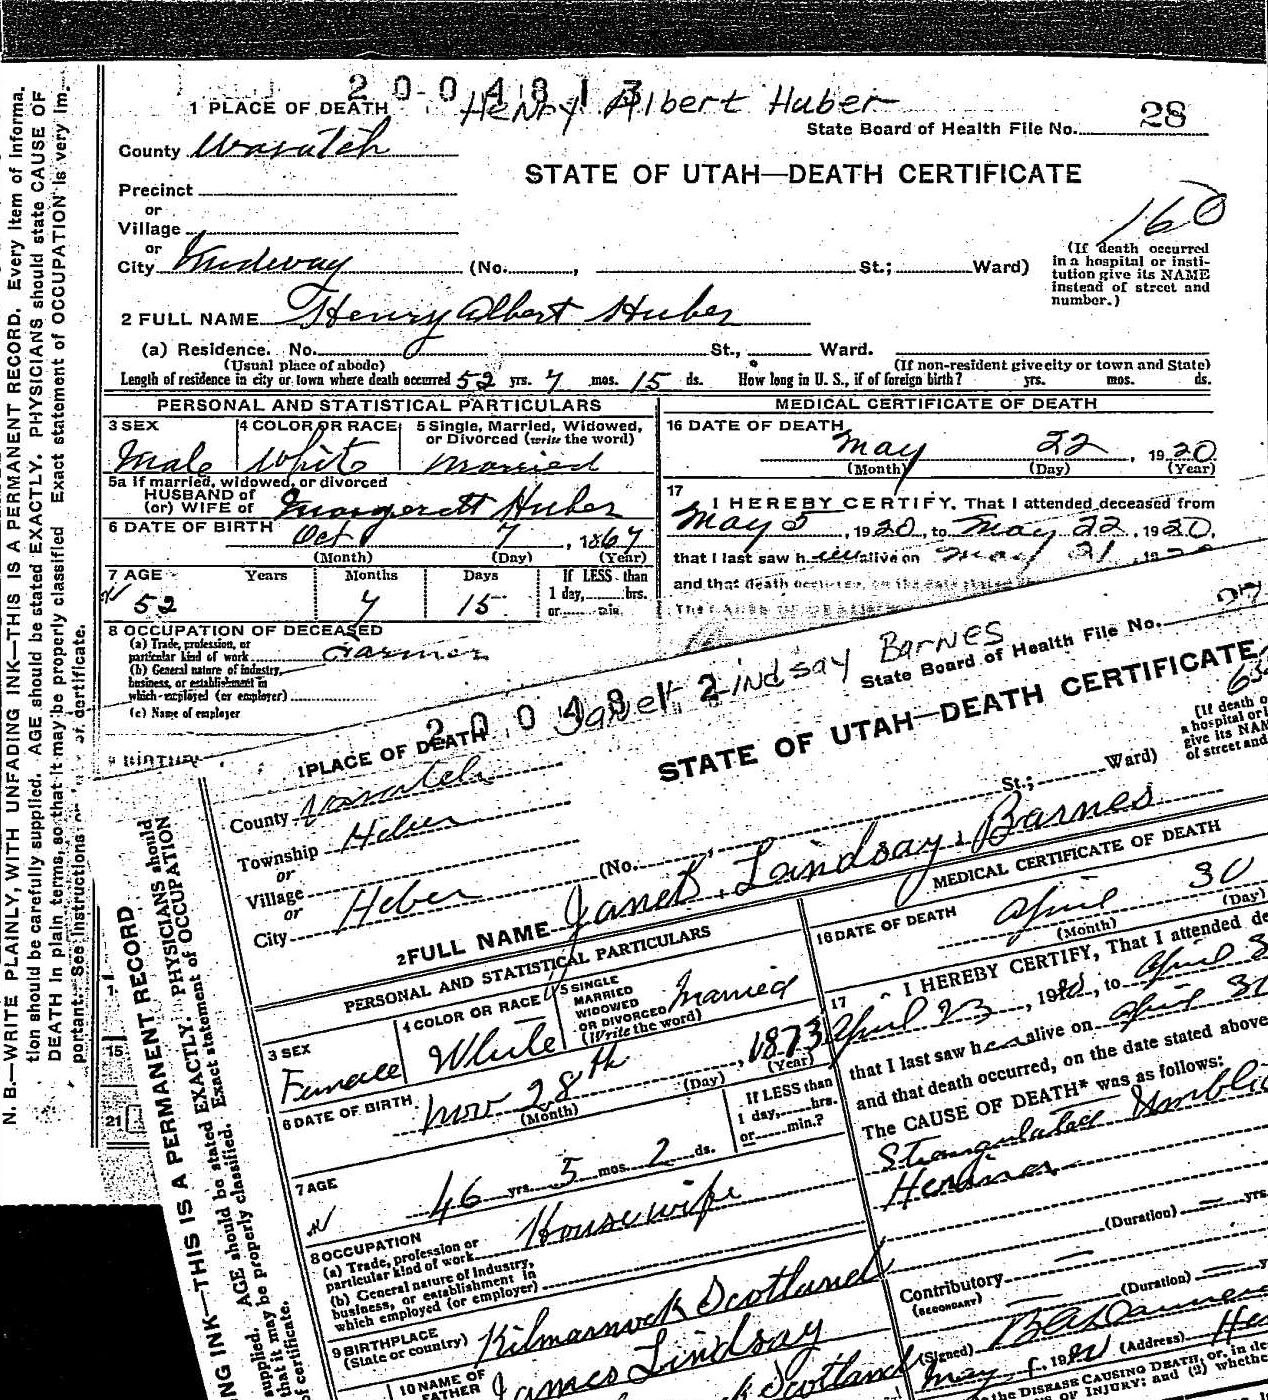 2004813
Henry Albert Huber
28
1 PLACE OF DEATH
State Board of Health File No.
County Wasatch
STATE OF UTAH—DEATH CERTIFICATE
Precinct
or
160
Village
or
City Midway (No. , St.; Ward)
(If death occurred
in a hospital or insti-
tution give its NAME
instead of street and
number.)
2 FULL NAME Henry Albert Huber
(a) Residence. No. St., Ward.
(Usual place of abode) (If non-resident give city or town and State)
Length of residence in city or town where death occurred 52 yrs. 7 mos. 15 ds. How long in U. S., if of foreign birth? yrs. mos. ds.
PERSONAL AND STATISTICAL PARTICULARS
3 SEX
Male
4 COLOR OR RACE
White
5 Single, Married, Widowed,
or Divorced (write the word)
Married
5a If married, widowed, or divorced
HUSBAND of
(or) WIFE of Margarett Huber
6 DATE OF BIRTH Oct 7, 1867
(Month) (Day) (Year)
7 AGE Years Months Days If LESS than
1 day, hrs.
or min.
52 7 15
8 OCCUPATION OF DECEASED
(a) Trade, profession, or
particular kind of work Farmer
(b) General nature of industry,
business, or establishment in
which employed (or employer)
(c) Name of employer
9 BIRTHPL
MEDICAL CERTIFICATE OF DEATH
16 DATE OF DEATH
May 22, 1920
(Month) (Day) (Year)
17
I HEREBY CERTIFY, That I attended deceased from
May 5, 1920, to May 22, 1920,
that I last saw him alive on May 21, 1920
and that death occurred, on the date stated
The CAUSE OF DEA
N. B.—WRITE PLAINLY, WITH UNFADING INK—THIS IS A PERMANENT RECORD. Every item of informa-
tion should be carefully supplied. AGE should be stated EXACTLY. PHYSICIANS should state CAUSE OF
DEATH in plain terms, so that it may be properly classified. Exact statement of OCCUPATION is very im-
portant. See instructions of certificate.
15
21
Janet Lindsay BARNES
State Board of Health File No.
1 PLACE OF DEATH
STATE OF UTAH—DEATH CERTIFICATE
County Wasatch
Township Heber
or
Village
or
City Heber (No. St.; Ward)
(If death o
a hospital or i
give its NAM
of street and
2 FULL NAME Janet Lindsay Barnes
PERSONAL AND STATISTICAL PARTICULARS
3 SEX
Female
4 COLOR OR RACE
White
5 SINGLE
MARRIED
WIDOWED
OR DIVORCED
(Write the word)
Married
6 DATE OF BIRTH Nov 28th, 1873
(Month) (Day) (Year)
7 AGE
46 yrs. 5 mos. 2 ds.
If LESS than
1 day, hrs.
or min.?
8 OCCUPATION
(a) Trade, profession or
particular kind of work Housewife
(b) General nature of industry,
business, or establishment in
which employed (or employer)
9 BIRTHPLACE
(State or country) Kilmarnock Scotland
10 NAME OF
FATHER James Lindsay
Scotland
MEDICAL CERTIFICATE OF DEATH
16 DATE OF DEATH
April 30
(Month) (Day)
17 I HEREBY CERTIFY, That I attended de
April 23, 1920, to April 3
that I last saw her alive on April 30
and that death occurred, on the date stated above
The CAUSE OF DEATH* was as follows:
Strangulated Umblic
Hernia
(Duration) yrs
Contributory
(SECONDARY)
(Duration) y
(Signed)
May 1, 1920 (Address) He
the DISEASE CAUSING DEATH, or, in de
OF INJURY; and (2) whethe
PERMANENT RECORD
NG INK—THIS IS A PERMANENT RECORD
supplied. AGE should be stated EXACTLY. PHYSICIANS should
that it may be properly classified. Exact statement of OCCUPATION
of certificate.